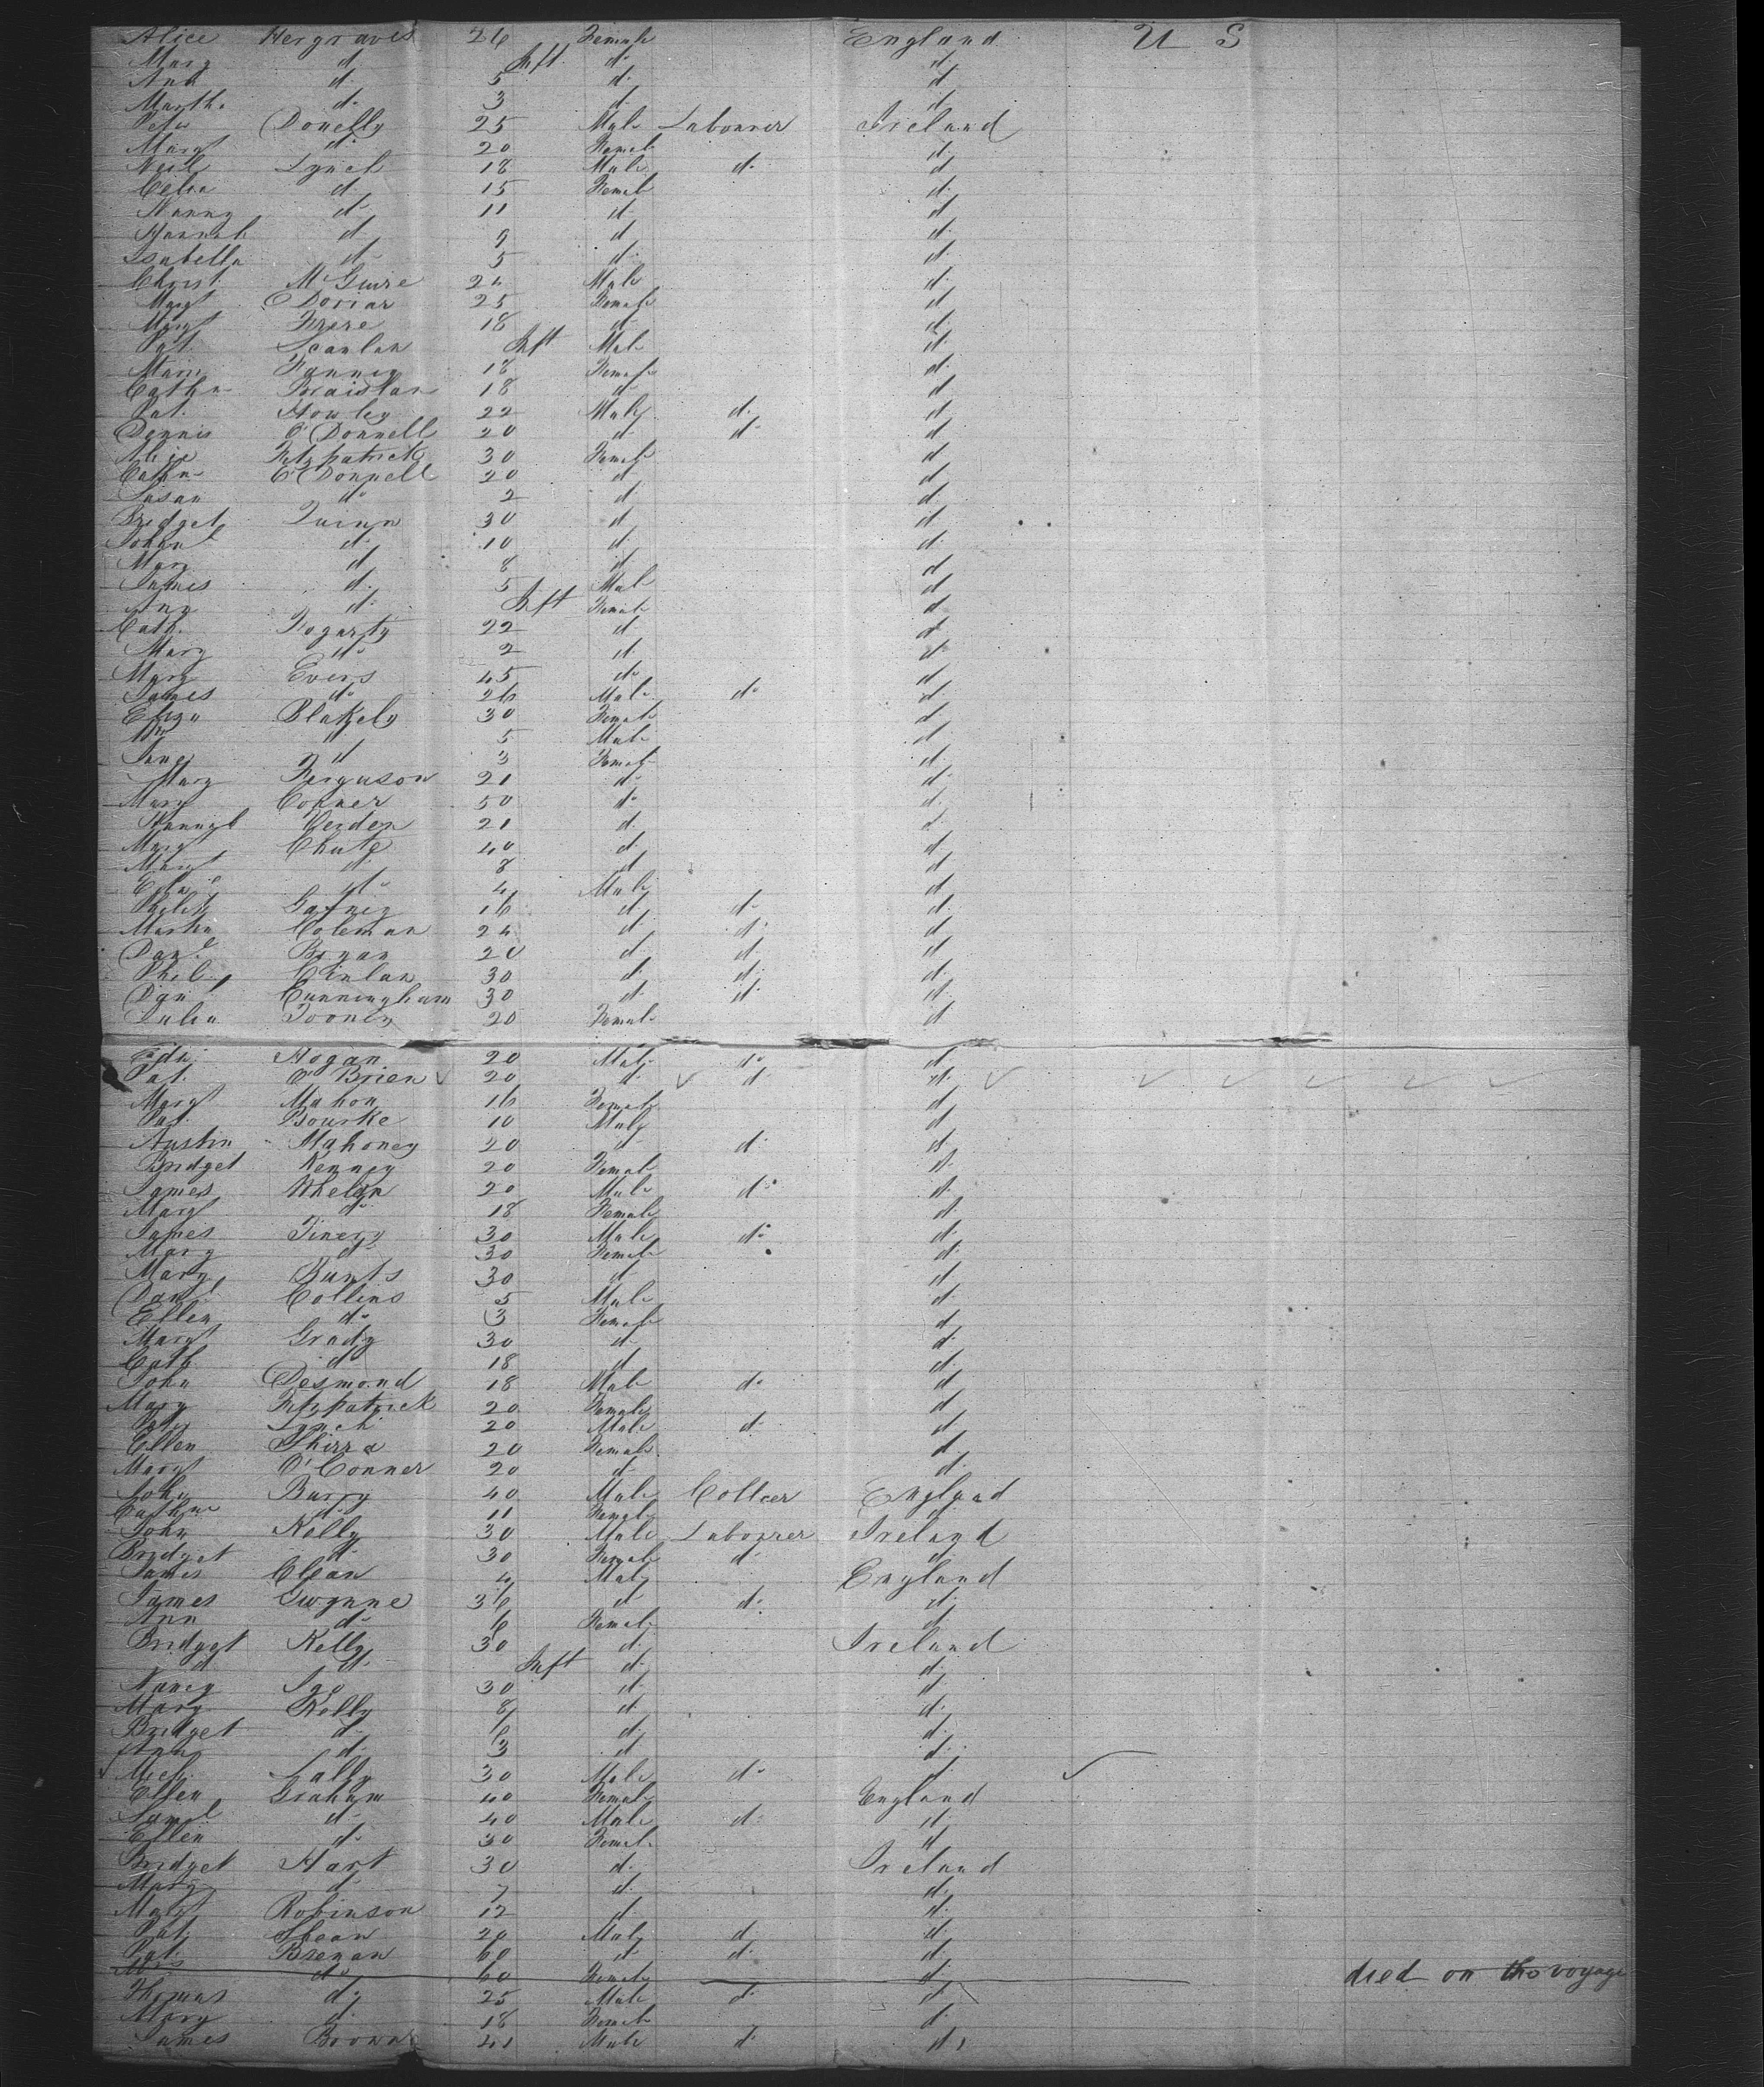 Alice Hergraves 26 Female England U S
Mary d. Inft d. d.
Ann d. 5 d. d.
Martha d. 3 d. d.
Peter Donelly 25 Male Labourer Ireland
Margt d. 20 Female d.
Neil Lynch 18 Male d. d.
Celia d. 15 Female d.
Nanny d. 11 d. d.
Hannah d. 9 d. d.
Isabella d. 5 d. d.
Christ. McGuire 24 Male d.
Margt 25 Female d.
Margt 18 d. d.
Pat. Scanlan Inft Male d.
Mary 18 Female d.
Cathn 18 d. d.
Pat. Howley 22 Male d. d.
Dennis O'Donnell 20 d. d. d.
Alice Fitzpatrick 30 Female d.
Cathn O'Donnell 20 d. d.
Susan do 2 d. d.
Bridget Quinn 30 d. d.
Johan d. 10 d. d.
Mary d. 8 d. d.
James d. 5 Male d.
Ann d. Inft Female d.
Cath. Fogarty 22 d. d.
Mary do 2 d. d.
Mary Evers 45 do d.
James do 26 Male do d.
Eliza Blakely 30 Female d.
Wm d 5 Male d.
Jane d 3 Female d.
Mary Ferguson 21 d. d.
Mary Conner 50 do d.
Hannah 21 d. d.
Margt Chute 40 d. d.
Margt d. 8 d. d.
do 4 Male d.
Philip Gafney 16 d. do d.
Martin Coleman 24 d. d. d.
Danl Bryan 20 d. d. d.
Phil. 30 d. d. d.
Dan Cunningham 30 d. d. d.
Julia Tooney 20 Female d.
Edw. Hogan 20 Male do d.
Pat. O'Brien 20 d. d. d.
Margt Mahon 16 Female d.
Pat. Bourke 10 Male d.
Austin Mahoney 20 d. d. d.
Bridget Kenney 20 Female d.
James Whelan 20 Male do d.
Margt do 18 Female d.
James Finery 30 Male do d.
Mary do 30 Female d.
Mary 30 d. d.
Danl Collins 5 Male d.
Ellen do 3 Female d.
Margt Grady 30 d. d.
Cath. do 18 d. d.
John Desmond 18 Male do d.
Mary Fitzpatrick 20 Female d.
Lynch 20 Male d. d.
Ellen 20 Female d.
Margt O'Conner 20 d. d.
John Barry 40 Male Collier England
Cathne d. 11 Female d.
John Kelly 30 Male Labourer Ireland
Bridget d. 30 Female d. d.
James Clean 4 Male England
James Gwynne 36 d. do d.
Ann do 6 Female d.
Bridget Kelly 30 d. Ireland
d. d. Inft d. d.
Nancy Igo 30 d. d.
Mary Kelly 8 d. d.
Bridget d. 6 d. d.
Ann d. 3 d. d.
Mich. Lally 30 Male do d.
Ellen Graham 40 Female England
Saml d. 40 Male d. d.
Ellen do 30 Female d.
Bridget Hart 30 d. Ireland
Mary d. 7 d. d.
Margt Robinson 12 d. d.
Pat. Shean 20 Male d. d.
Pat. Brenan 60 d. d. d.
Mrs do 60 Female d. died on the voyage
Thomas d. 25 Male d. d.
Mary d. 18 Female d.
James Brown 41 Male d. d.